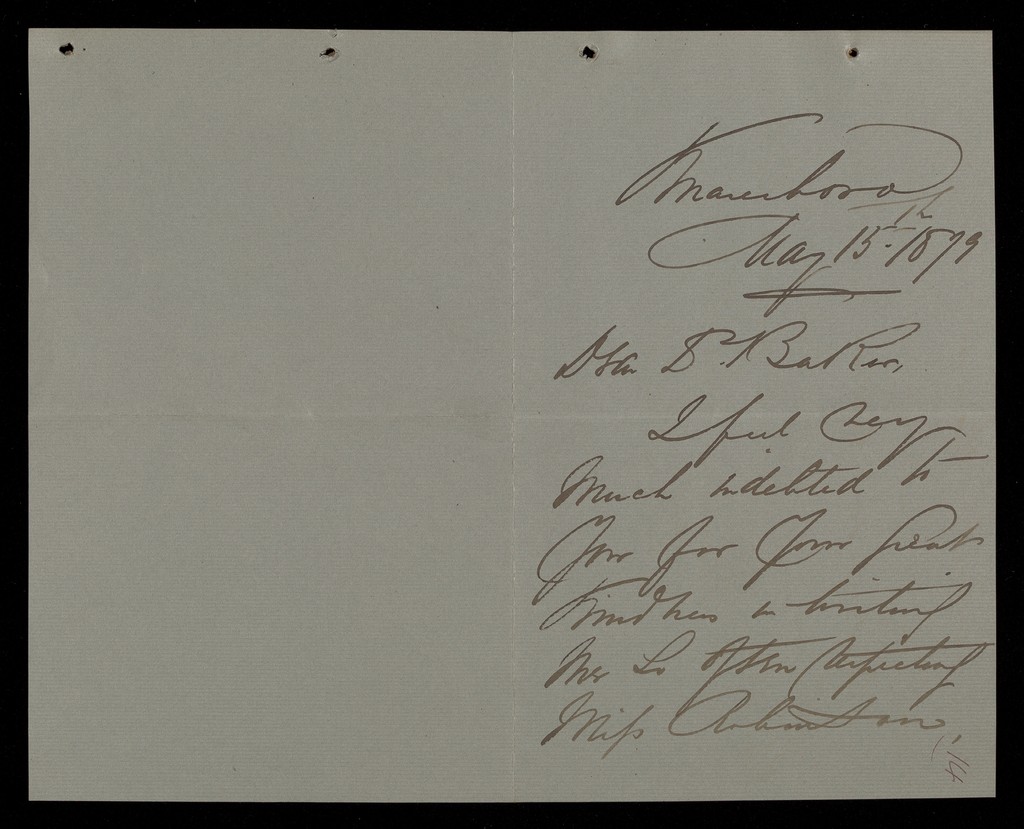 Knaresboro
May 15th 1879
Dear Dr. Baker,
I feel very
Much indebted to
You for Your great
Kindness in writing
Me So often respecting
Miss Robinson
14